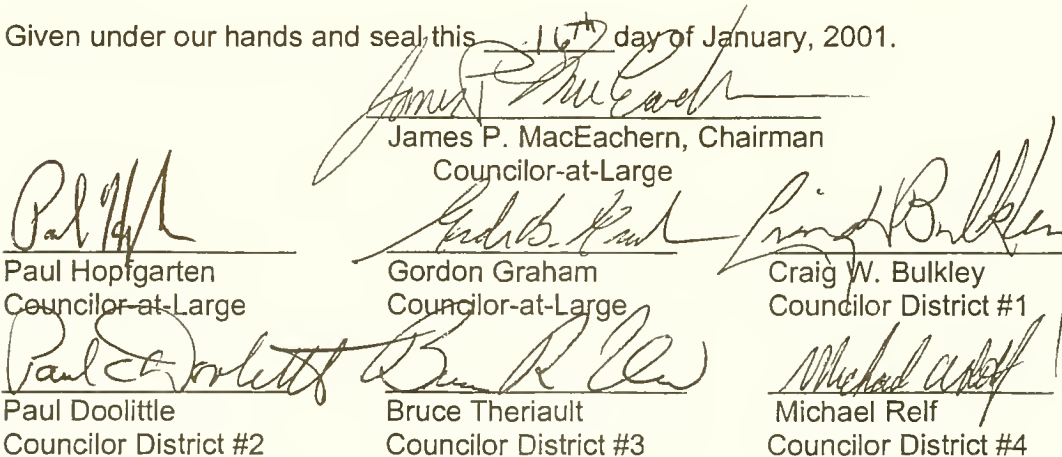 Given under our hands and seal this 16th day of January, 2001.
James P. MacEachern
James P. MacEachern, Chairman
Councilor-at-Large
Paul
Paul Hopfgarten
Councilor-at-Large
Gordon Graham
Councilor-at-Large
Craig W. Bulkley
Craig W. Bulkley
Councilor District #1
Paul Doolittle
Paul Doolittle
Councilor District #2
Bruce R
Bruce Theriault
Councilor District #3
Michael
Michael Relf
Councilor District #4